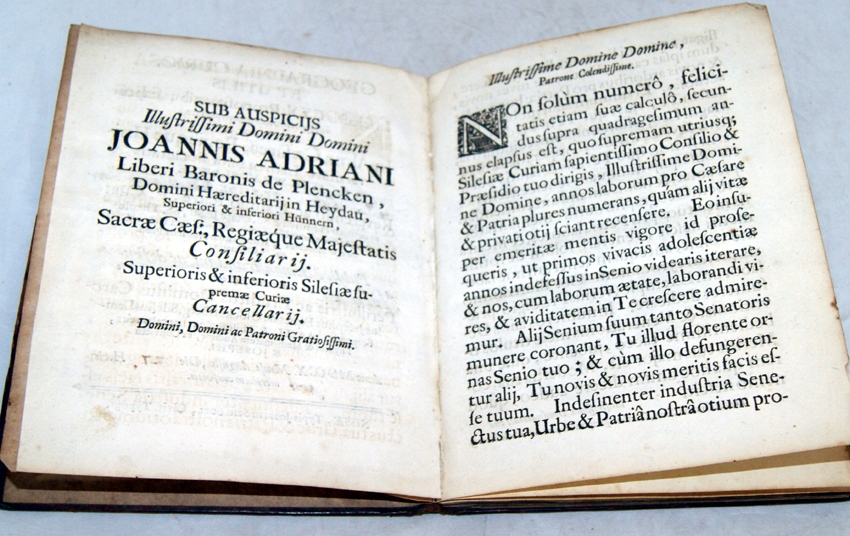 SUB AUSPICIJS
Illustrissimi Domini Domini
JOANNIS ADRIANI
Liberi Baronis de Plencken,
Domini Hæreditarij in Heydau,
Superiori & inferiori Hünnern,
Sacræ Cæs:, Regiæq́ue Majestatis
Consiliarij.
Superioris & inferioris Silesiæ su-
premæ Curiæ
Cancellarij.
Domini, Domini ac Patroni Gratiosissimi.
Illustrissime Domine Domine,
Patrone Colendissime.
NOn solùm numerô, felici-
tatis etiam suæ calculô, secun-
dus supra quadragesimum an-
nus elapsus est, quo supremam utriusq;
Silesiæ Curiam sapientissimo Consilio &
Præsidio tuo dirigis, Illustrissime Domi-
ne Domine, annos laborum pro Cæsare
& Patria plures numerans, quám alij vitæ
& privati otij sciant recensere. Eo insu-
per emeritæ mentis vigore id prose-
queris, ut primos vivacis adolescentiæ
annos indefessus in Senio videaris iterare,
& nos, cum laborum ætate, laborandi vi-
res, & aviditatem in Te crescere admire-
mur. Alij Senium suum tanto Senatoris
munere coronant, Tu illud florente or-
nas Senio tuo; & cùm illo defungeren-
tur alij, Tu novis & novis meritis facis es-
se tuum. Indesinenter industria Sene-
ctus tua, Urbe & Patriâ nostrâ otium pro-